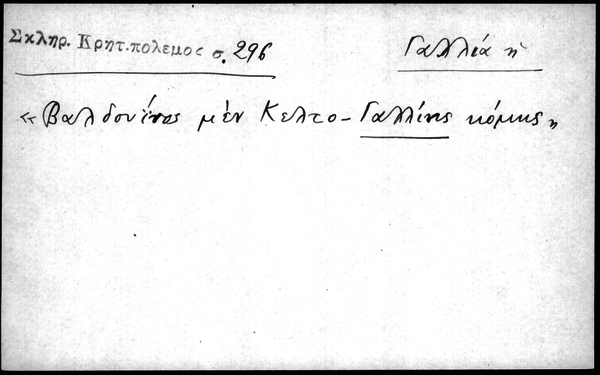 Σκληρ. Κρητ. πολεμος σ. 296
Γαλλία ἡ
« Βαλδουίνος μὲν Κελτο-Γαλλίης κόμης »